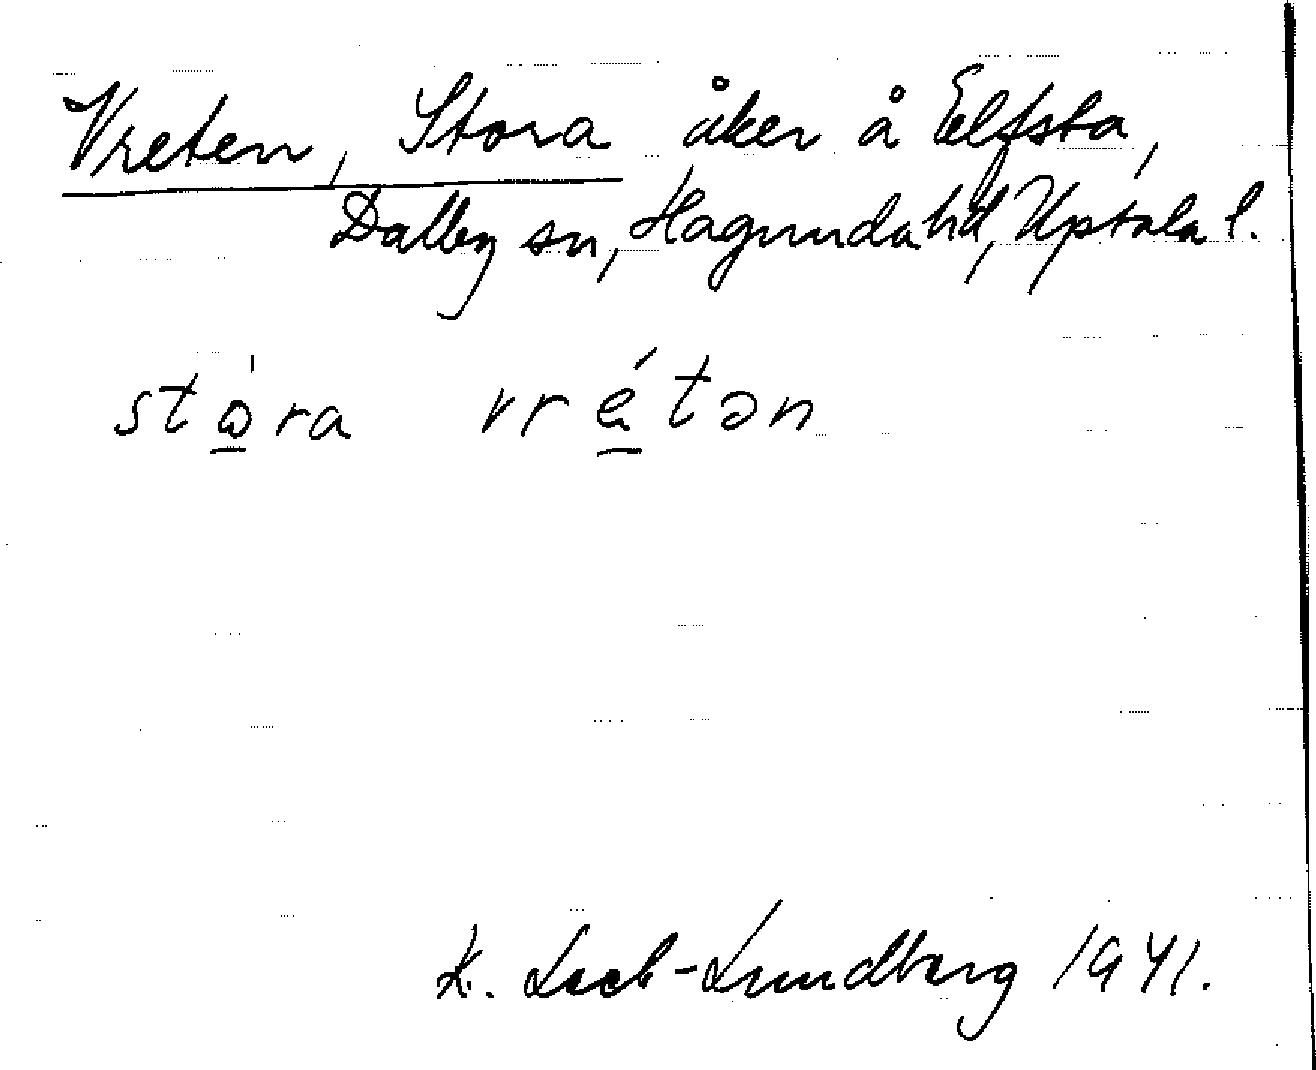 Vreten, Stora åker å Elfsta,
Dalby sn, Hagunda hd, Upsala l.
stὼ̲ra vré̲tən
K. Lech-Lundberg 1941.